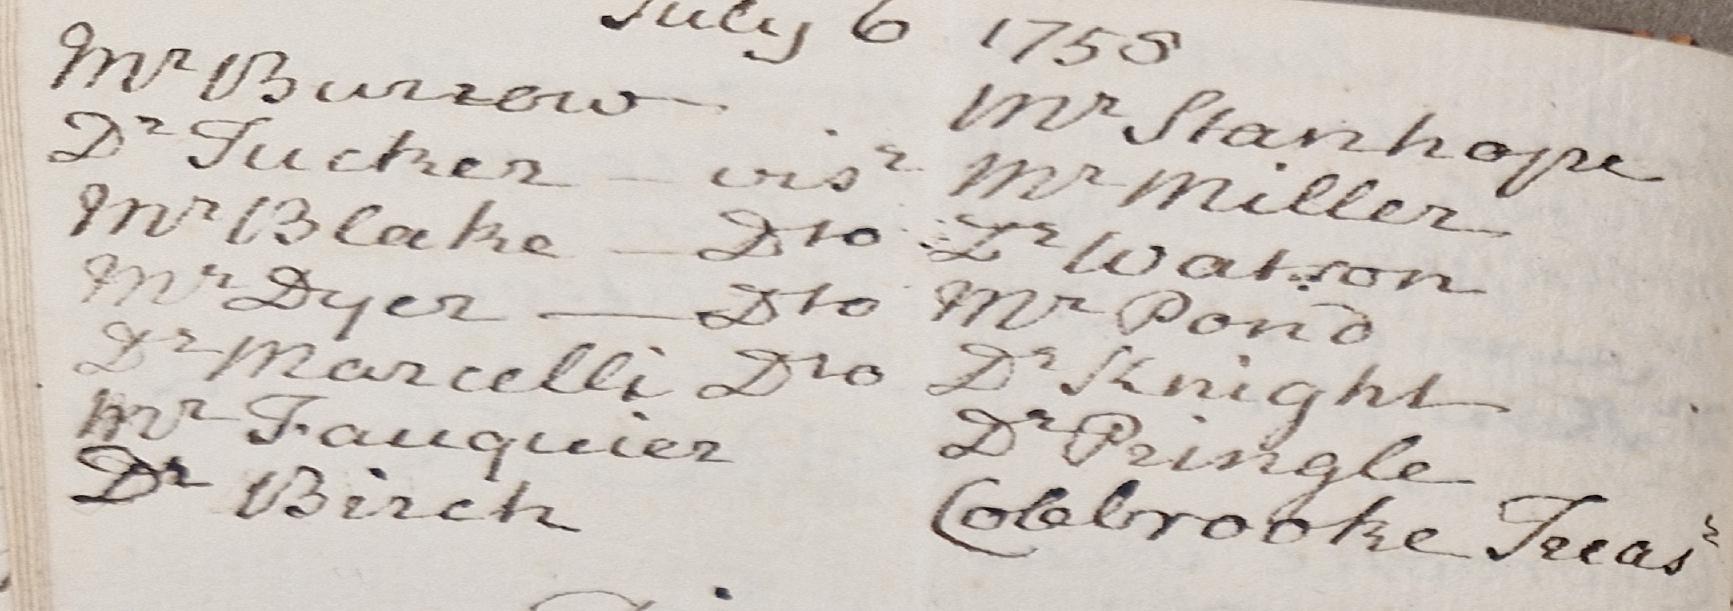 July 6 1758
Mr Burrow
Dr Tucker - visr
Mr Blake - Dto
Mr Dyer - Dto
Dr Marcelli Dto
Mr Fauquier
Dr Birch
Mr Stanhope
Mr Miller
Dr Watson
Mr Pond
Dr Knight
Dr Pringle
Colebrooke Treasr